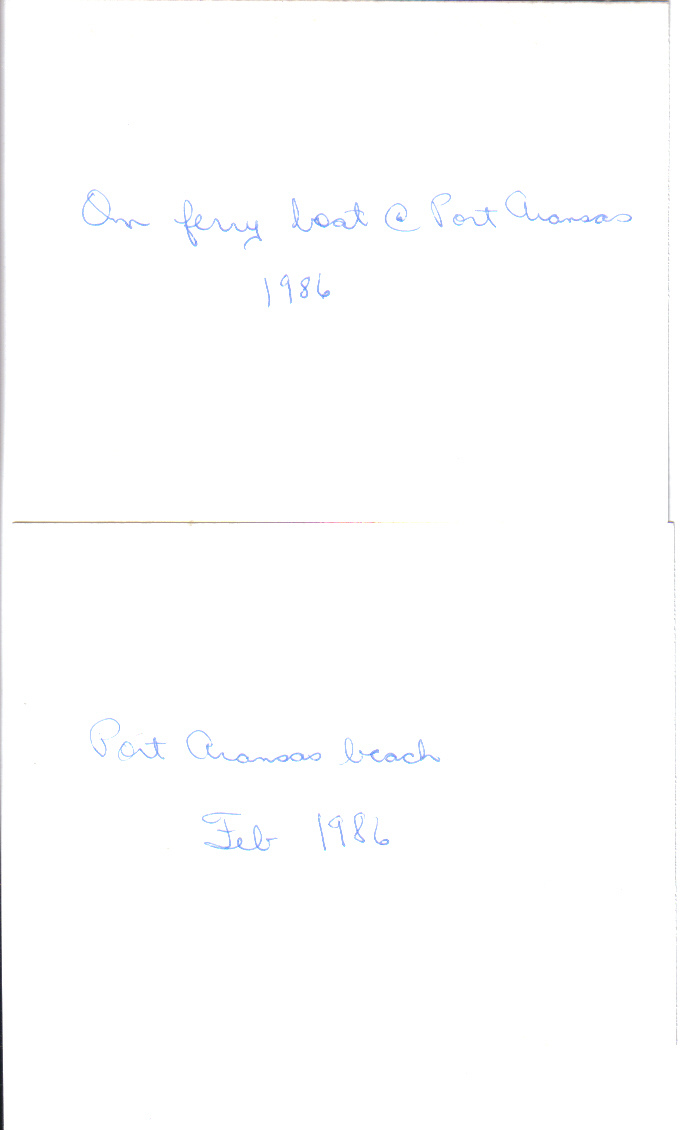 On ferry boat @ Port Aransas
1986
Port Aransas beach
Feb 1986